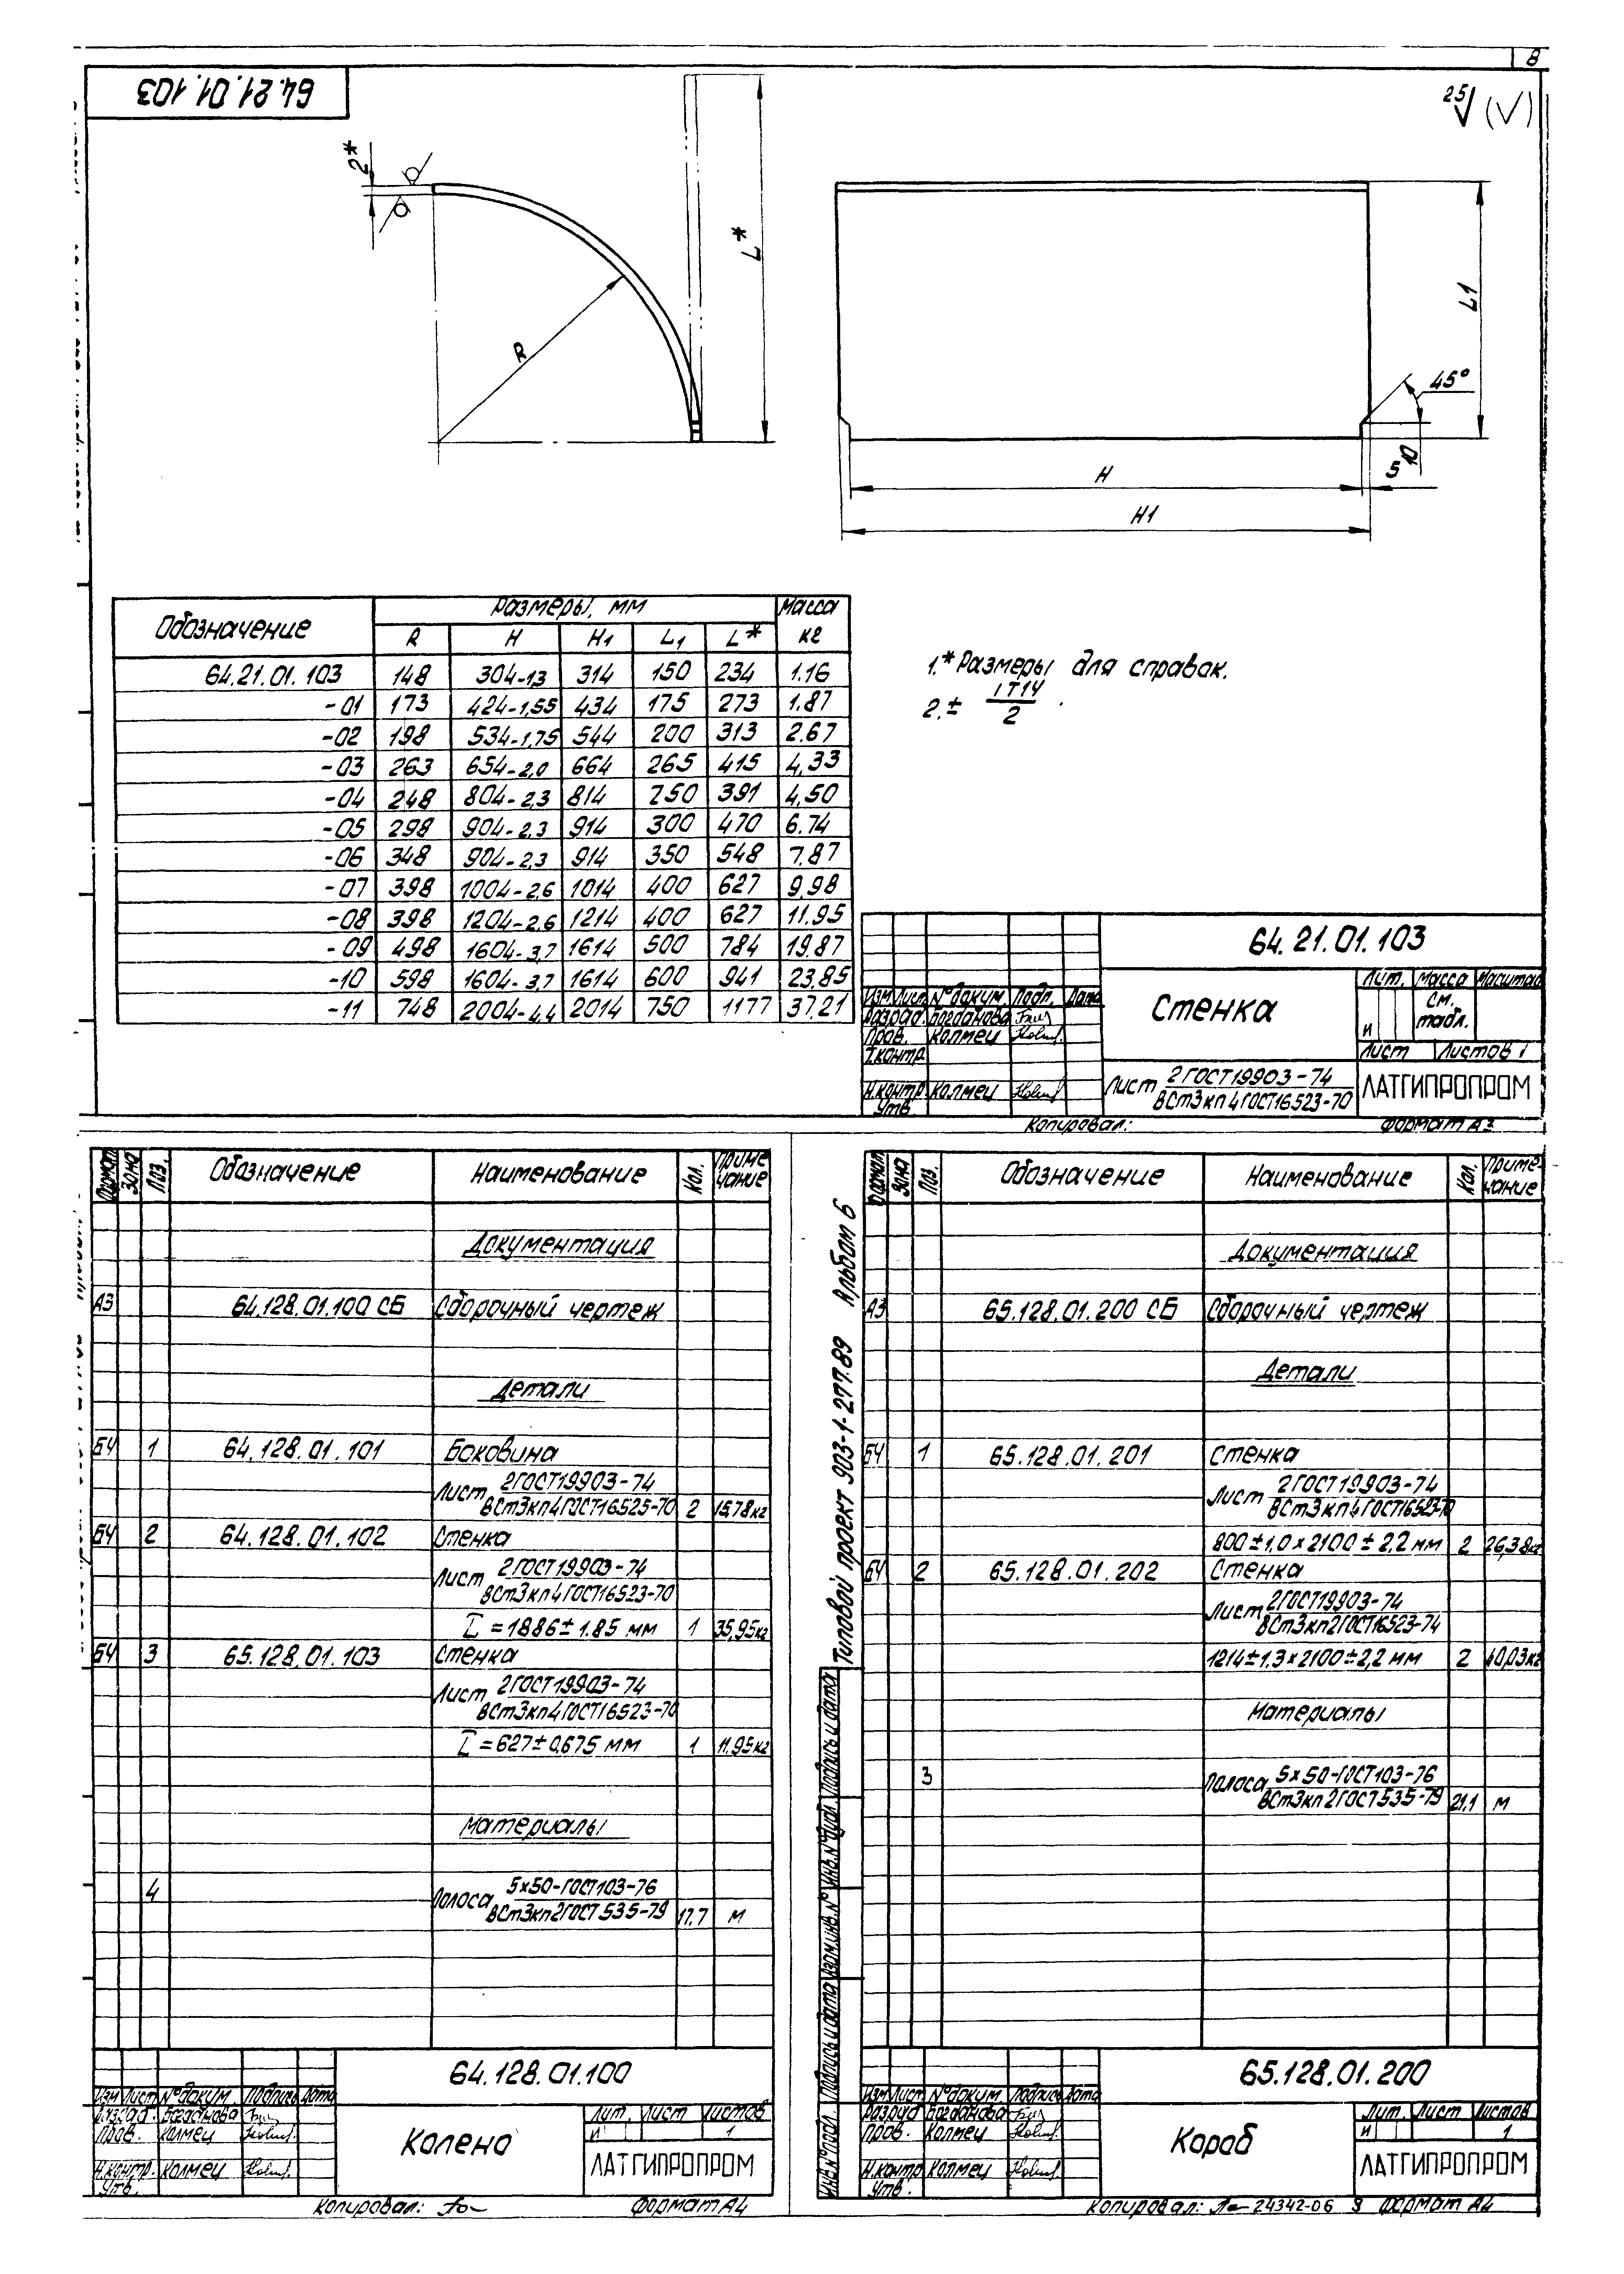 8
64.21.01.103
25 (√)
2*
R
L*
L1
45°
5
10
H
H1
Обозначение Размеры, мм Масса кг
R H H1 L1 L*
64.21.01.103 148 304-1,3 314 150 234 1.16
-01 173 424-1,55 434 175 273 1.87
-02 198 534-1,75 544 200 313 2.67
-03 263 654-2,0 664 265 415 4,33
-04 248 804-2,3 814 250 391 4,50
-05 298 904-2,3 914 300 470 6.74
-06 348 904-2,3 914 350 548 7.87
-07 398 1004-2,6 1014 400 627 9,98
-08 398 1204-2,6 1214 400 627 11.95
-09 498 1604-3,7 1614 500 784 19.87
-10 598 1604-3,7 1614 600 941 23,85
-11 748 2004-4,4 2014 750 1177 37,21
1.* Размеры для справок.
2. ± IT14/2.
64.21.01.103
Стенка
Лит. Масса Масштаб
и см. табл.
Лист Листов 1
Изм Лист № докум. Подп. Дата
Разраб. Богданова
Пров. Колмец
Т.контр
Н.контр. Колмец
Утв.
Лист 2 ГОСТ 19903-74
ВСт3кп4 ГОСТ 16523-70
ЛАТГИПРОПРОМ
Копировал: Формат А3
Формат Зона Поз. Обозначение Наименование Кол. Примечание
Документация
А3 64.128.01.100 СБ Сборочный чертеж
Детали
БЧ 1 64.128.01.101 Боковина
Лист 2 ГОСТ 19903-74
ВСт3кп4 ГОСТ 16523-70 2 15,78кг
БЧ 2 64.128.01.102 Стенка
Лист 2 ГОСТ 19903-74
ВСт3кп4 ГОСТ 16523-70
L = 1886 ± 1.85 мм 1 35,95кг
БЧ 3 65.128.01.103 Стенка
Лист 2 ГОСТ 19903-74
ВСт3кп4 ГОСТ 16523-70
L = 627 ± 0,675 мм 1 11.95кг
Материалы
4 Полоса 5х50-ГОСТ 103-76
ВСт3кп2 ГОСТ 535-79 17.7 м
64.128.01.100
Изм Лист № докум Подпись Дата
Разраб. Богданова
Пров. Колмец
Н.контр. Колмец
Утв.
Колено
Лит. Лист Листов
и 1
ЛАТГИПРОПРОМ
Копировал: Формат А4
Типовой проект 903-1-277.89 Альбом 6
Формат Зона Поз. Обозначение Наименование Кол. Примечание
Документация
А3 65.128.01.200 СБ Сборочный чертеж
Детали
БЧ 1 65.128.01.201 Стенка
Лист 2 ГОСТ 19903-74
ВСт3кп4 ГОСТ 16523-70
800 ± 1,0 х 2100 ± 2,2 мм 2 26,38кг
БЧ 2 65.128.01.202 Стенка
Лист 2 ГОСТ 19903-74
ВСт3кп2 ГОСТ 16523-74
1214 ± 1,3 х 2100 ± 2,2 мм 2 40,03кг
Материалы
3 Полоса 5х50-ГОСТ 103-76
ВСт3кп2 ГОСТ 535-79 21,1 м
Инв. № подл. Подпись и дата Взам. инв. № Инв. № дубл. Подпись и дата
65.128.01.200
Изм Лист № докум Подпись Дата
Разраб Богданова
Пров. Колмец
Н.контр Колмец
Утв.
Короб
Лит. Лист Листов
и 1
ЛАТГИПРОПРОМ
Копировал: 24342-06 9 Формат А4